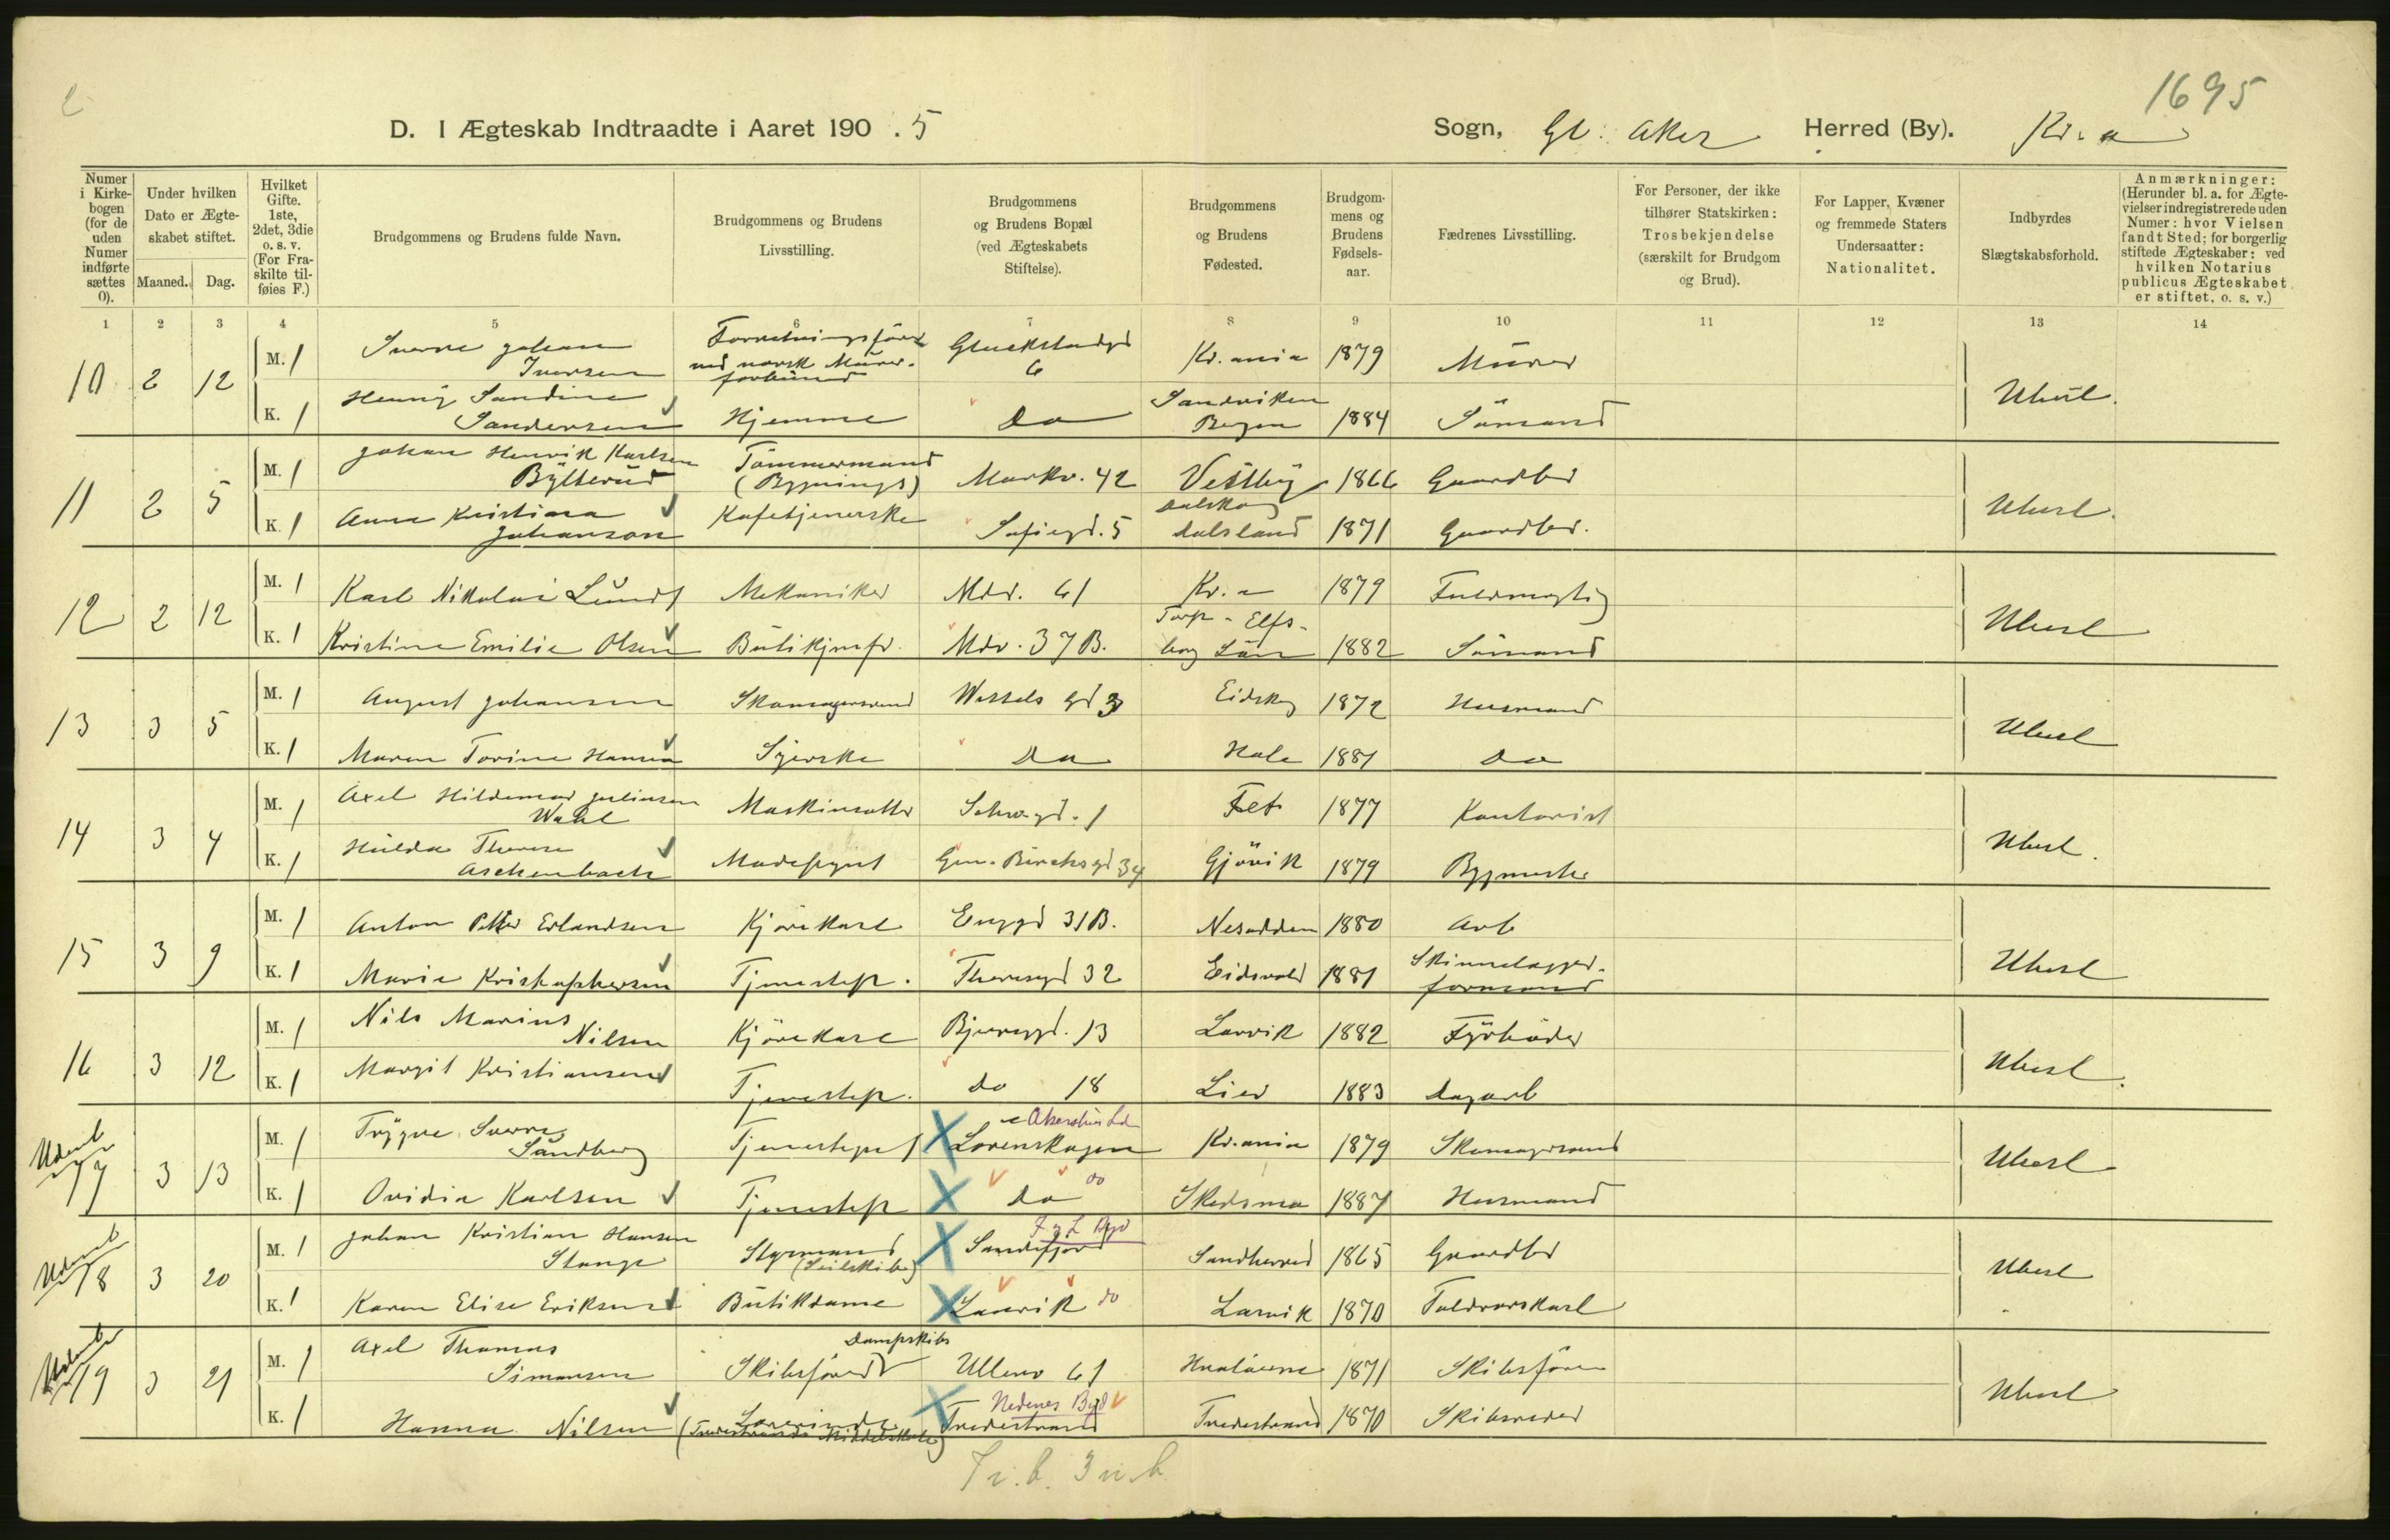 1695
D. I Ægteskab Indtraadte i Aaret 190.5 Sogn, Gl. Aker Herred (By). Kr.a
Numer i Kirkebogen (for de uden Numer indførte sættes 0).
Under hvilken Dato er Ægteskabet stiftet.
Maaned. Dag.
Hvilket Gifte. 1ste, 2det, 3die o. s. v. (For Fraskilte tilføies F.)
Brudgommens og Brudens fulde Navn.
Brudgommens og Brudens Livsstilling.
Brudgommens og Brudens Bopæl (ved Ægteskabets Stiftelse).
Brudgommens og Brudens Fødested.
Brudgommens og Brudens Fødselsaar.
Fædrenes Livsstilling.
For Personer, der ikke tilhører Statskirken: Trosbekjendelse (særskilt for Brudgom og Brud).
For Lapper, Kvæner og fremmede Staters Undersaatter: Nationalitet.
Indbyrdes Slægtskabsforhold.
Anmærkninger: (Herunder bl. a. for Ægtevielser indregistrerede uden Numer: hvor Vielsen fandt Sted; for borgerlig stiftede Ægteskaber: ved hvilken Notarius publicus Ægteskabet er stiftet, o. s. v.)
1 2 3 4 5 6 7 8 9 10 11 12 13 14
10 2 12 M. 1 Sverre Johan Iversen Forretningsfører ved norsk Murerforbund Gluckstadgd 6 Kr.ania 1879 Murer
K. 1 Henny Sandine Sandersen Hjemme Do Sandviken Bergen 1884 Sömand Ubesl.
11 2 5 M. 1 Johan Henrik Karlsen Bylterud Tömmermand (Bygnings) Markv. 42 Vestby 1866 Gaardbr
K. 1 Anna Kristina Johanson Kafetjenerske Sofiegd. 5 Dalskog Dalsland 1871 Gaardbr. Ubesl.
12 2 12 M. 1 Karl Nikolai Lund Mekaniker Mdv. 61 Kr.a 1879 Fuldmægtig
K. 1 Kristine Emilie Olsen Butikjmfr. Mdv. 37B. Torp - Elfsborg Län 1882 Sömand Ubesl
13 3 5 M. 1 August Johansen Skomagersvend Wessels gd 3 Eidskog 1872 Husmand
K. 1 Maren Torine Hansen Syerske Do Hole 1881 Do Ubesl
14 3 4 M. 1 Axel Hildemar Juliusen Wahl Maskinsætter Schwgd. 1 Fet 1877 Kontorist
K. 1 Hulda Therese Aschenbach Modepynt Gen. Birchsgd 34 Gjövik 1879 Bygmester Ubesl.
15 3 9 M. 1 Anton Petter Erlandsen Kjörekarl Enggd 31B. Nesodden 1880 Arb
K. 1 Marie Kristophersen Tjenestep. Theresgd 32 Eidsvold 1881 Skinnelægger-formand Ubesl
16 3 12 M. 1 Nils Marius Nilsen Kjörekarl Bjerregd. 13 Larvik 1882 Fyrböder
K. 1 Margit Kristiansen Tjenestep. do 18 Lier 1883 Dagarb Ubesl.
17 3 13 M. 1 Trygve Sverre Sandberg Tjenestegut Akershus Ld Lorenskogen Kr.ania 1879 Skomagersvend
K. 1 Ovidia Karlsen Tjenestep Do do Skedsmo 1887 Husmand Ubesl
18 3 20 M. 1 Johan Kristian Hansen Stange Styrmand (Seilskibe) J. g. L Byd Sandefjord Sandherred 1865 Gaardbr
K. 1 Karen Elise Eriksen Butikdame Laurvik do Larvik 1870 Toldvorskarl Ubesl
19 3 21 M. 1 Axel Thomas Simonsen Skibsförer Dampskibs Ullevv 61 Hvaløerne 1871 Skibsförer
K. 1 Hanna Nilsen Lærerinde (Tvedestrands Middelskole) Nedenes Byd Tvedestrand Tvedestrand 1870 Skibsreder Ubesl
7 i. b. 3 u. b.